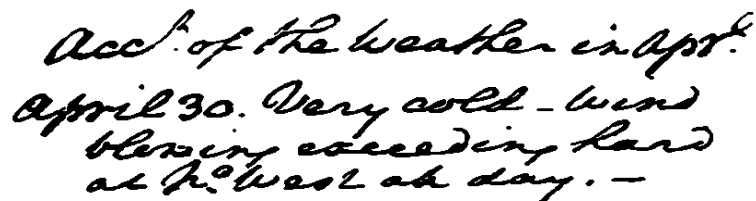 Acct. of the Weather in Aprl.
April 30. Very cold – Wind
blowing exceeding hard
at No. West all day. –